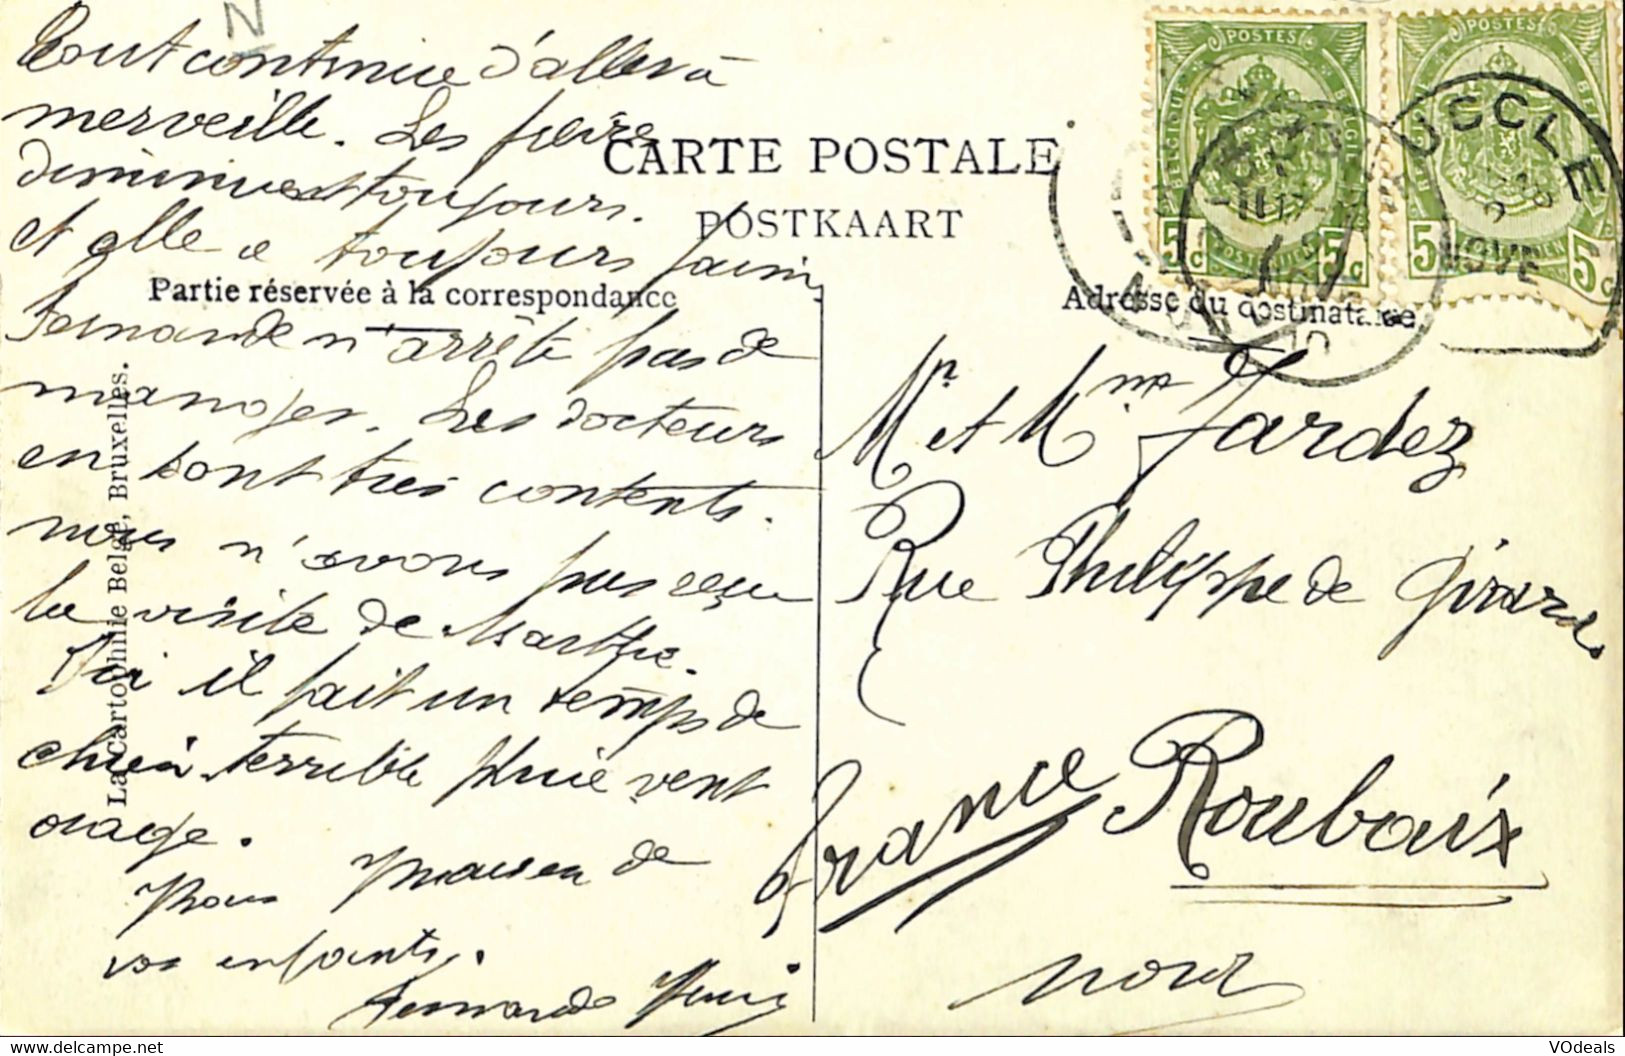 N
Tout continue d'aller à
merveille. Les
diminuent toujours.
et elle a toujours faim
Fernande n'arrête pas de
manger. Les docteurs
en sont très contents.
nous n'avons pas reçu
la visite de Marthe.
Ici il fait un temps de
chien terrible pluie vent
orage.
de
vos enfants.
Fernande
CARTE POSTALE
POSTKAART
Partie réservée à la correspondance
Adresse du destinataire
La Cartophilie Belge, Bruxelles.
POSTES
BELGIQUE BELGIE
POSTERIJEN
5c 5c
POSTES
5c 5c
UCCLE
NOVE
Mr et Mme Jardez
Rue Philippe de Girard
Roubaix
france
Nord
VOdeals
www.delcampe.net